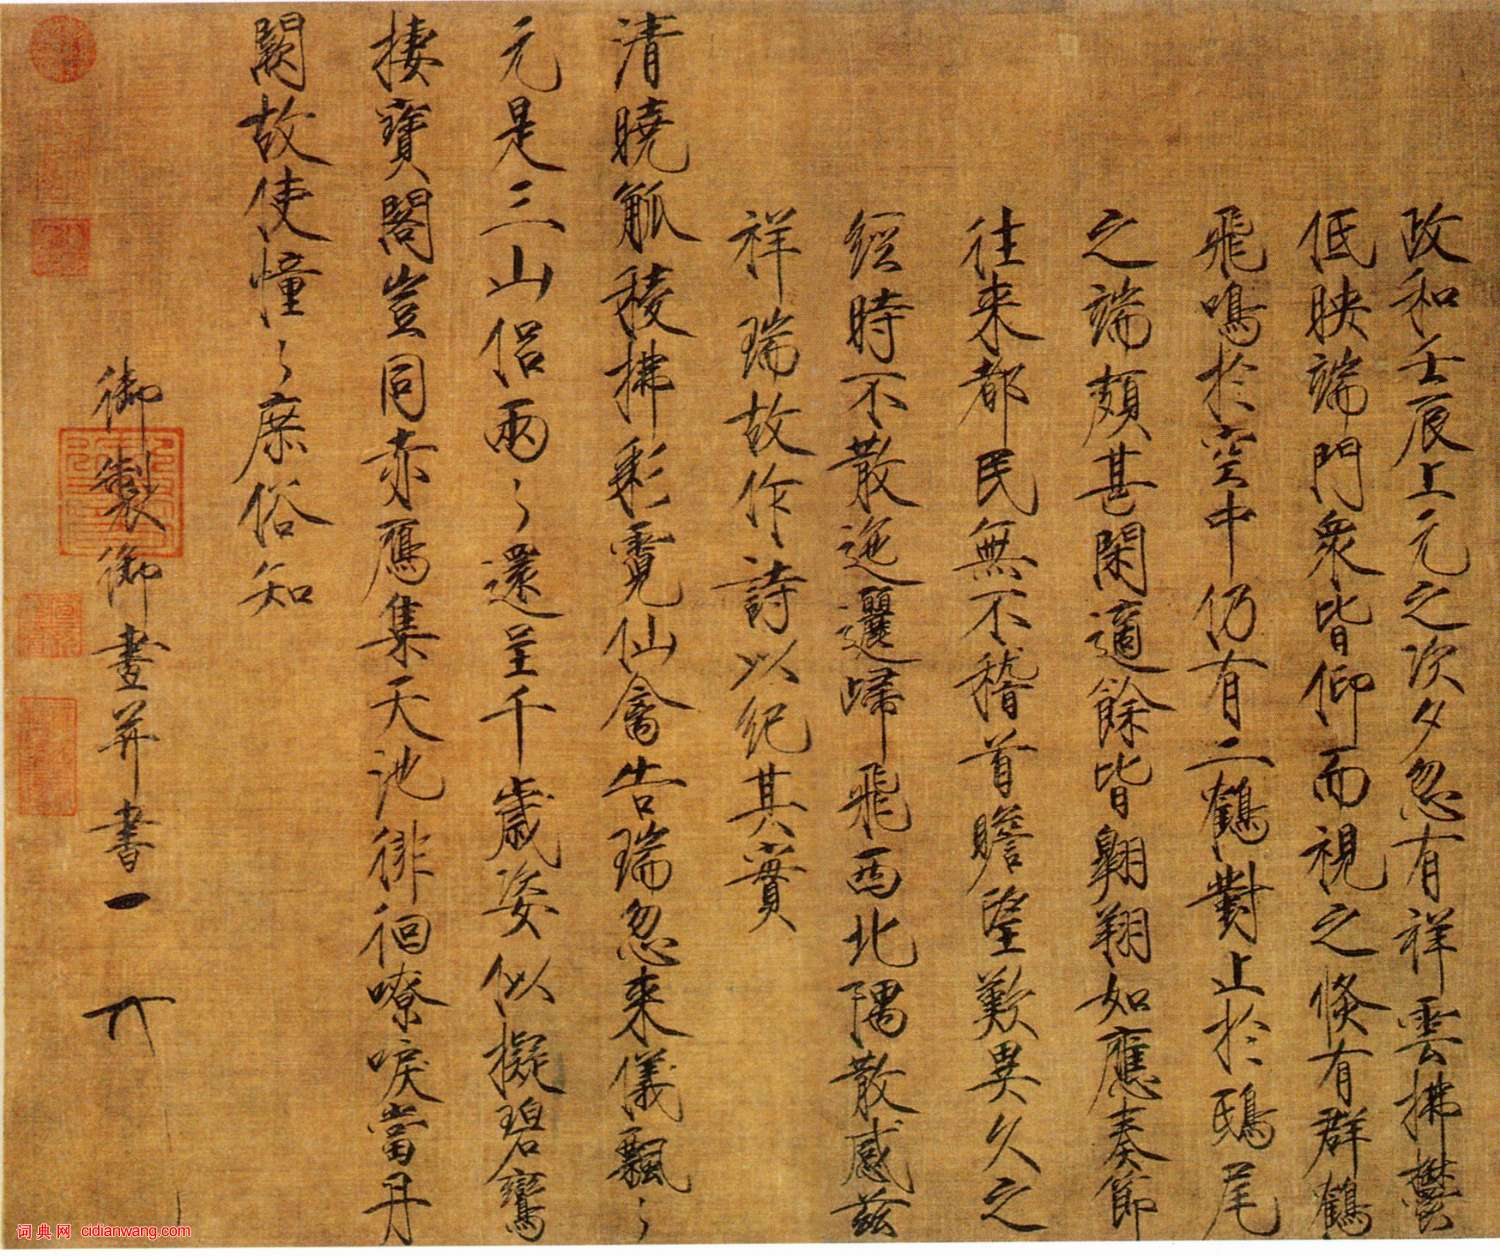 政和壬辰上元之次夕忽有祥雲拂鬱
低映端門衆皆仰而視之倏有群鶴
飛鳴於空中仍有二鶴對止於鴟尾
之端頗甚閑適餘皆翱翔如應奏節
往来都民無不稽首瞻望歎異久之
經時不散迤邐歸飛西北隅散感茲
祥瑞故作詩以紀其實
清曉觚稜拂彩霓仙禽告瑞忽来儀飄〻
元是三山侶兩〻還呈千歲姿似擬碧鸞
棲寶閣豈同赤鴈集天池徘徊嘹唳當丹
闕故使憧〻庶俗知
御製御畫并書
词典网 cidianwang.com